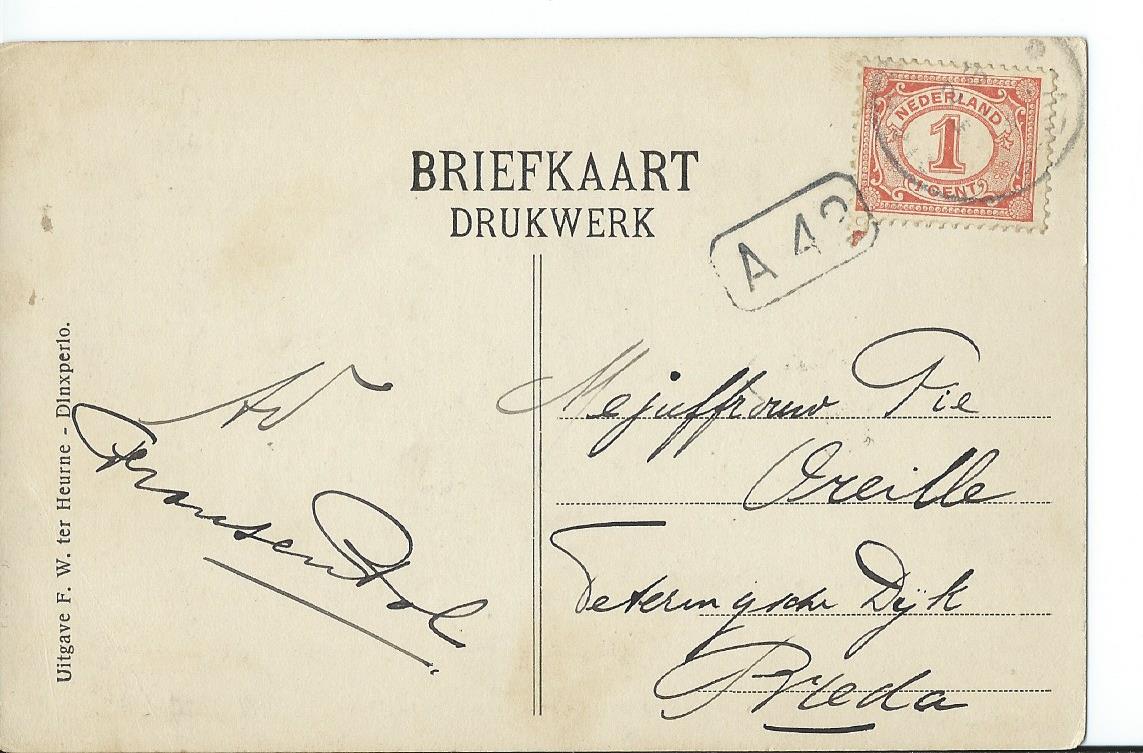 BRIEFKAART
DRUKWERK
NEDERLAND
1
CENT
A 42
Uitgave F. W. ter Heurne - Dinxperlo.
Fransen Pol
Mejuffrouw Pie
Oreille
Teteringsche Dijk
Breda